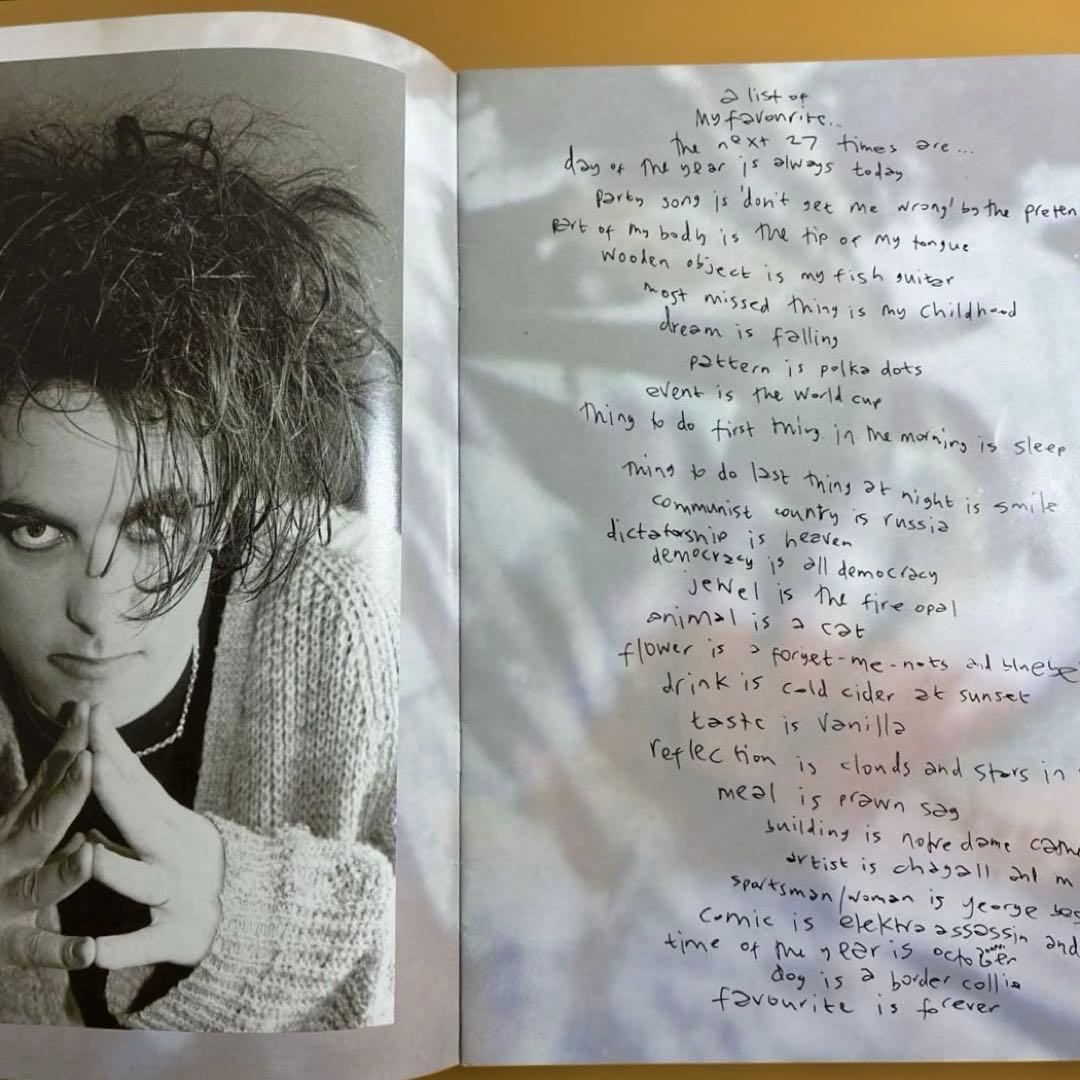 a list of
my favourite...
the next 27 times are...
day of the year is always today
party song is 'don't get me wrong' by the preten
part of my body is the tip of my tongue
wooden object is my fish guitar
most missed thing is my childhood
dream is falling
pattern is polka dots
event is the world cup
thing to do first thing in the morning is sleep
thing to do last thing at night is smile
communist country is russia
dictatorship is heaven
democracy is all democracy
jewel is the fire opal
animal is a cat
flower is a forget-me-nots and bluebe
drink is cold cider at sunset
taste is vanilla
reflection is clouds and stars in
meal is prawn sag
building is notre dame
artist is chagall and m
sportsman/woman is george bes
comic is elektra assassin and
time of the year is october
dog is a border collie
favourite is forever